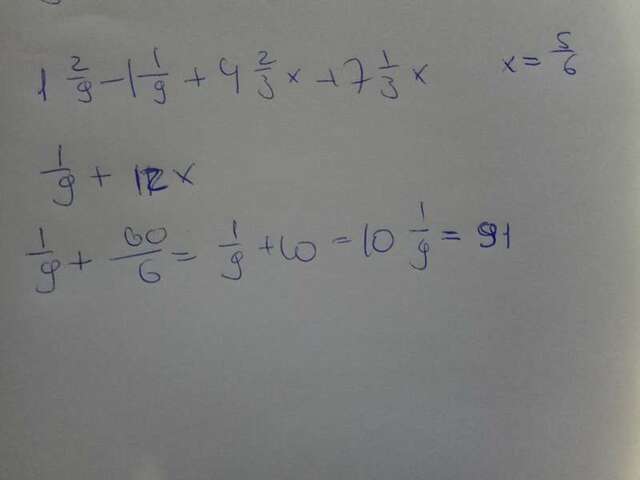 1 2/9 - 1 1/9 + 4 2/3 x + 7 1/3 x x = 5/6
1/9 + 12 x
1/9 + 60/6 = 1/9 + 10 = 10 1/9 = 91